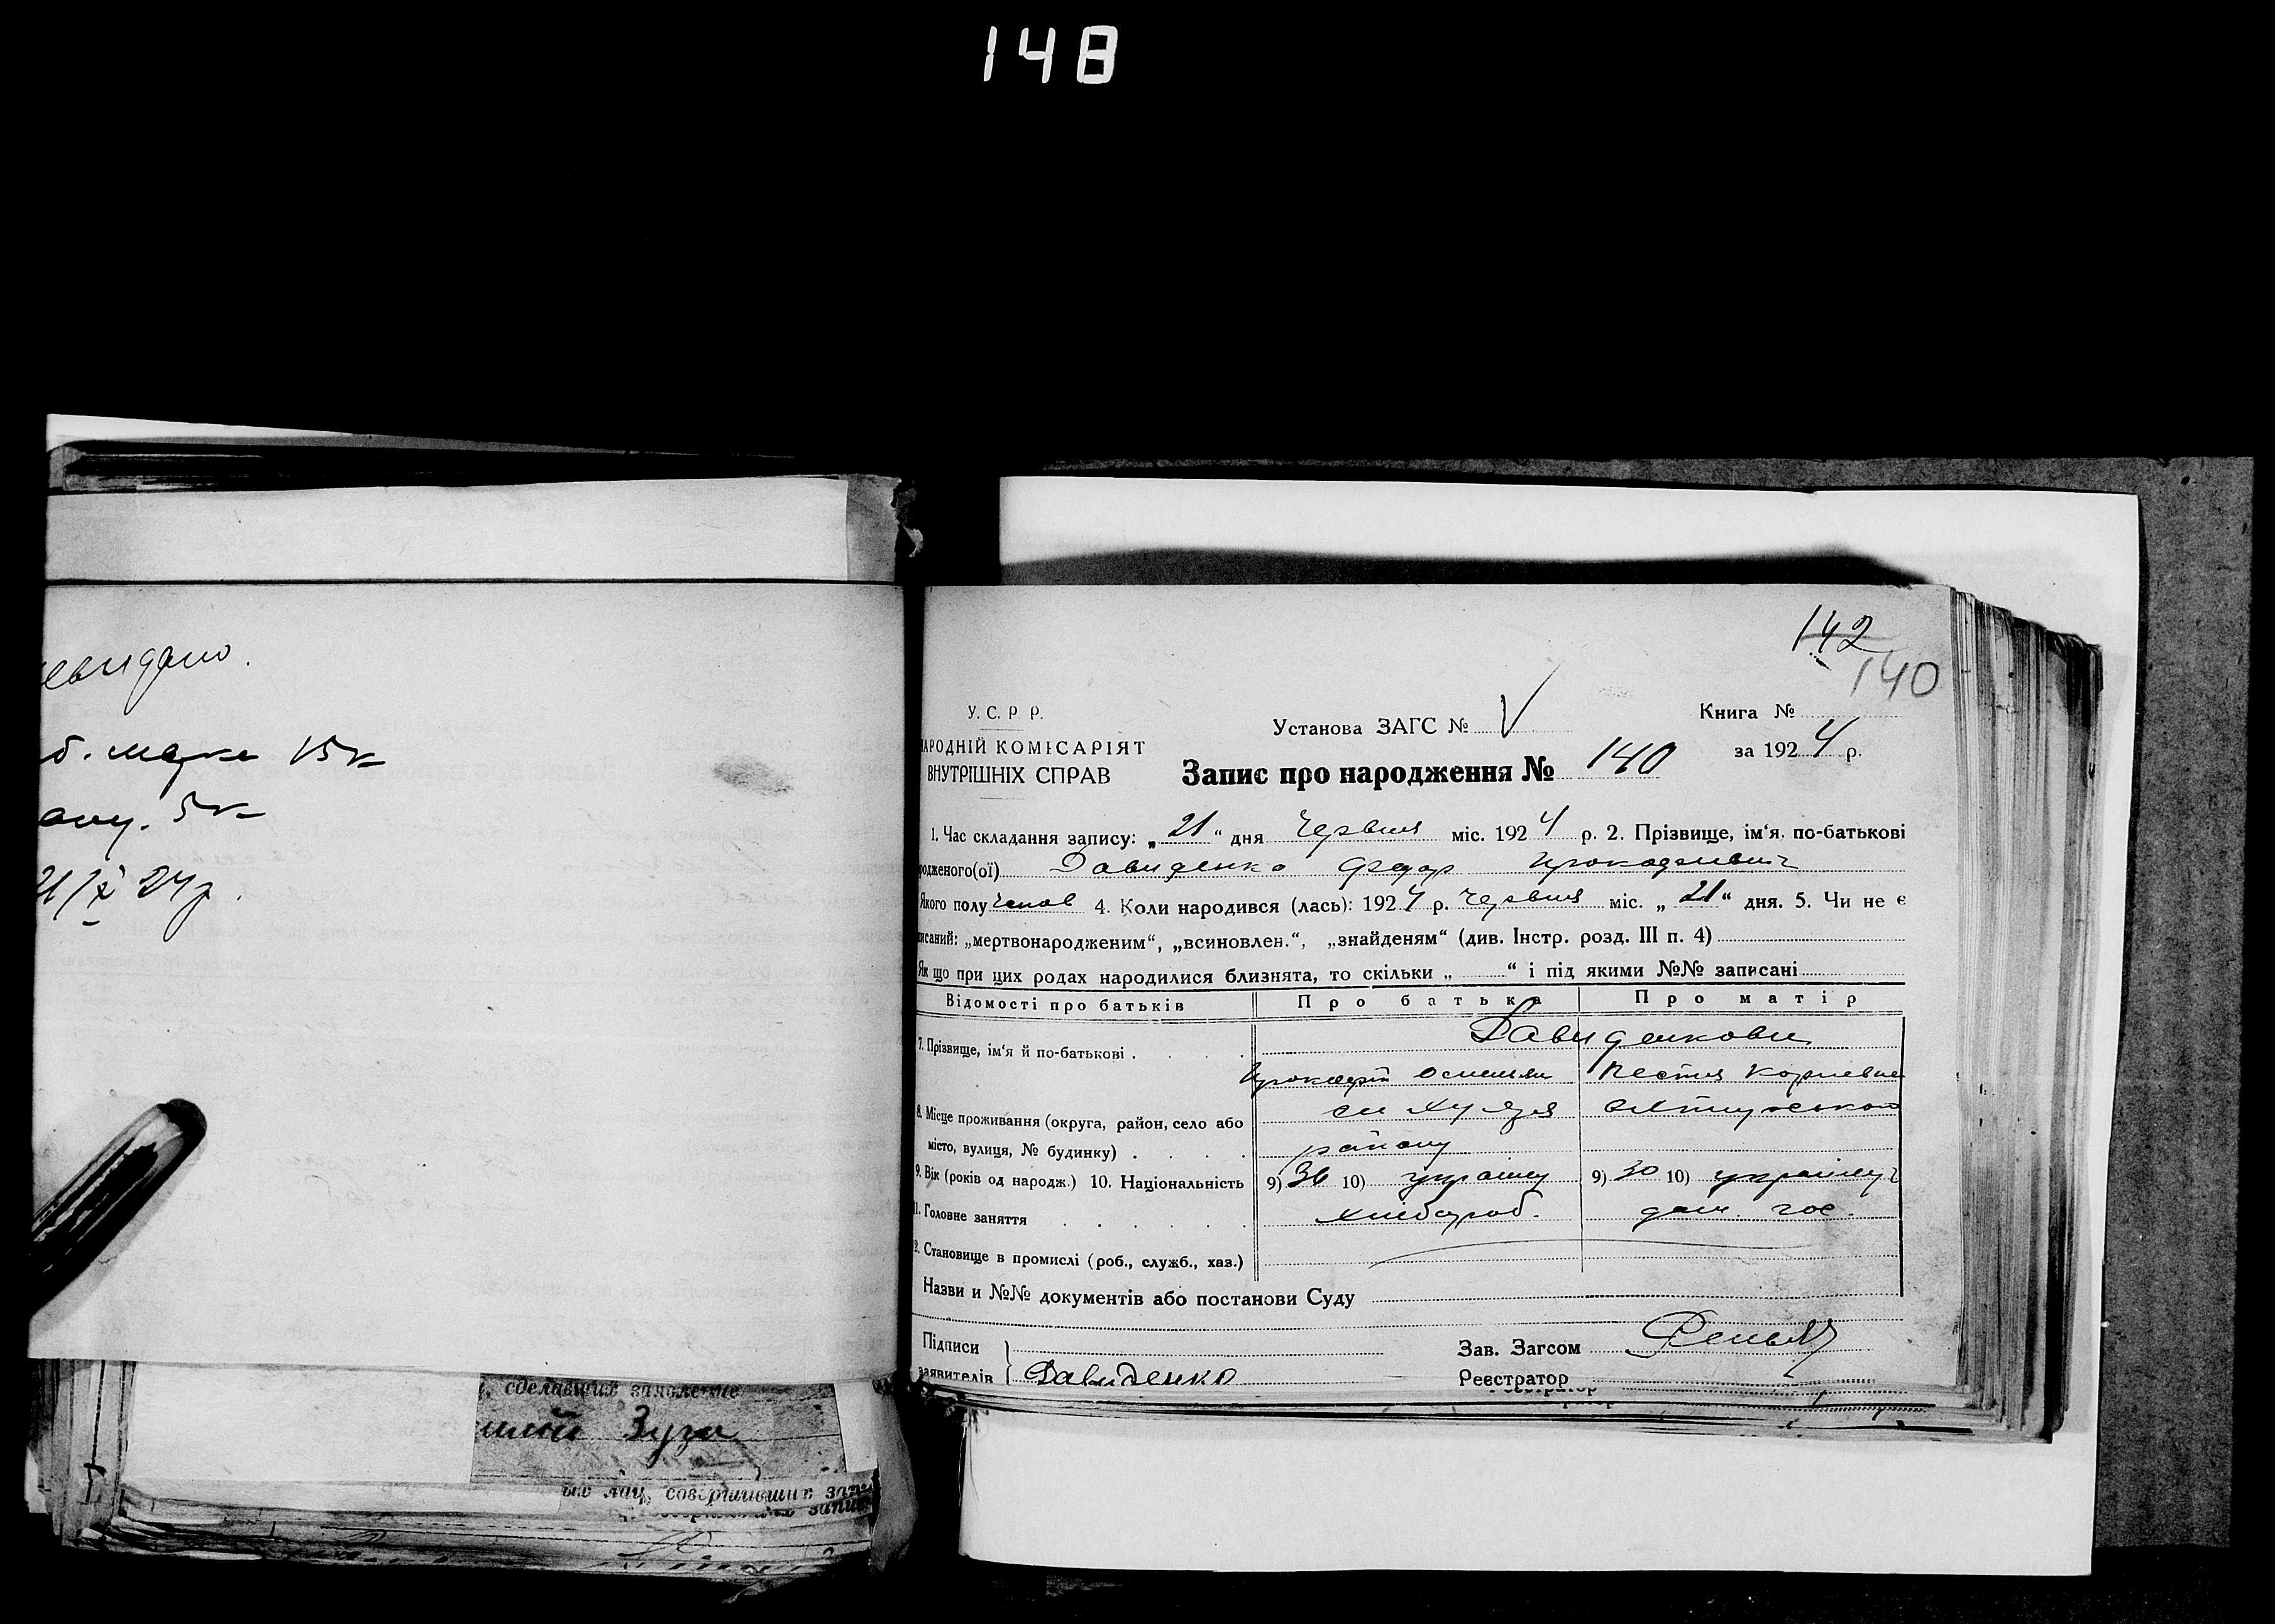 148
б. марка 15к
5к
21/X 24р.
сделавших заявление
Зуза
лиц, совершивших
142
140
У. С. Р. Р.
Установа ЗАГС № V
Книга №
НАРОДНІЙ КОМІСАРІЯТ
за 1924 р.
ВНУТРІШНІХ СПРАВ
Запис про народження № 140
1. Час складання запису: „21“ дня Червня міс. 1924 р. 2. Прізвище, ім'я, по-батькові
родженого(ої) Давиденко Федор
Якого полу чолов 4. Коли народився (лась): 1924 р. Червня міс. „21“ дня. 5. Чи не є
писаний: „мертвонародженим“, „всиновлен.“, „знайденям“ (див. Інстр. розд. III п. 4)
Як що при цих родах народилися близнята, то скільки „ “ і під якими №№ записані
Відомості про батьків Про батька Про матір
7. Прізвище, ім'я й по-батькові . Давиденкови
8. Місце проживання (округа, район, село або
місто, вулиця, № будинку) . району
9. Вік (років од народж.) 10. Національність 9) 36 10) україну 9) 30 10)
11. Головне заняття хлібороб. дом. гос.
12. Становище в промислі (роб., служб., хаз.)
Назви и №№ документів або постанови Суду
Підписи
Зав. Загсом
заявителів Давиденко
Реєстратор